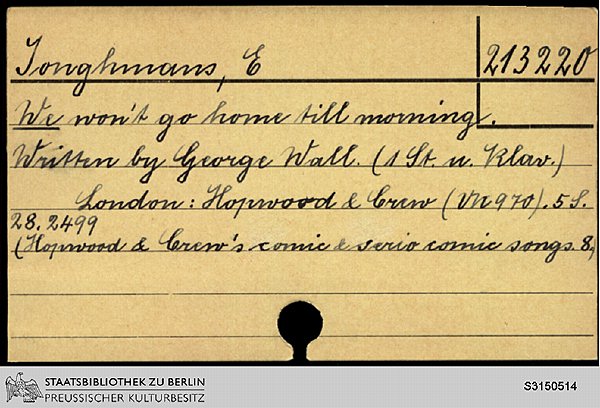 Jonghmans, E
213220
We won't go home till morning.
Written by George Wall. (1 St. u. Klav.)
London: Hopwood & Crew (VN 970). 5 S.
28.2499
(Hopwood & Crew's comic & serio comic songs. 8)
STAATSBIBLIOTHEK ZU BERLIN
PREUSSISCHER KULTURBESITZ
S3150514